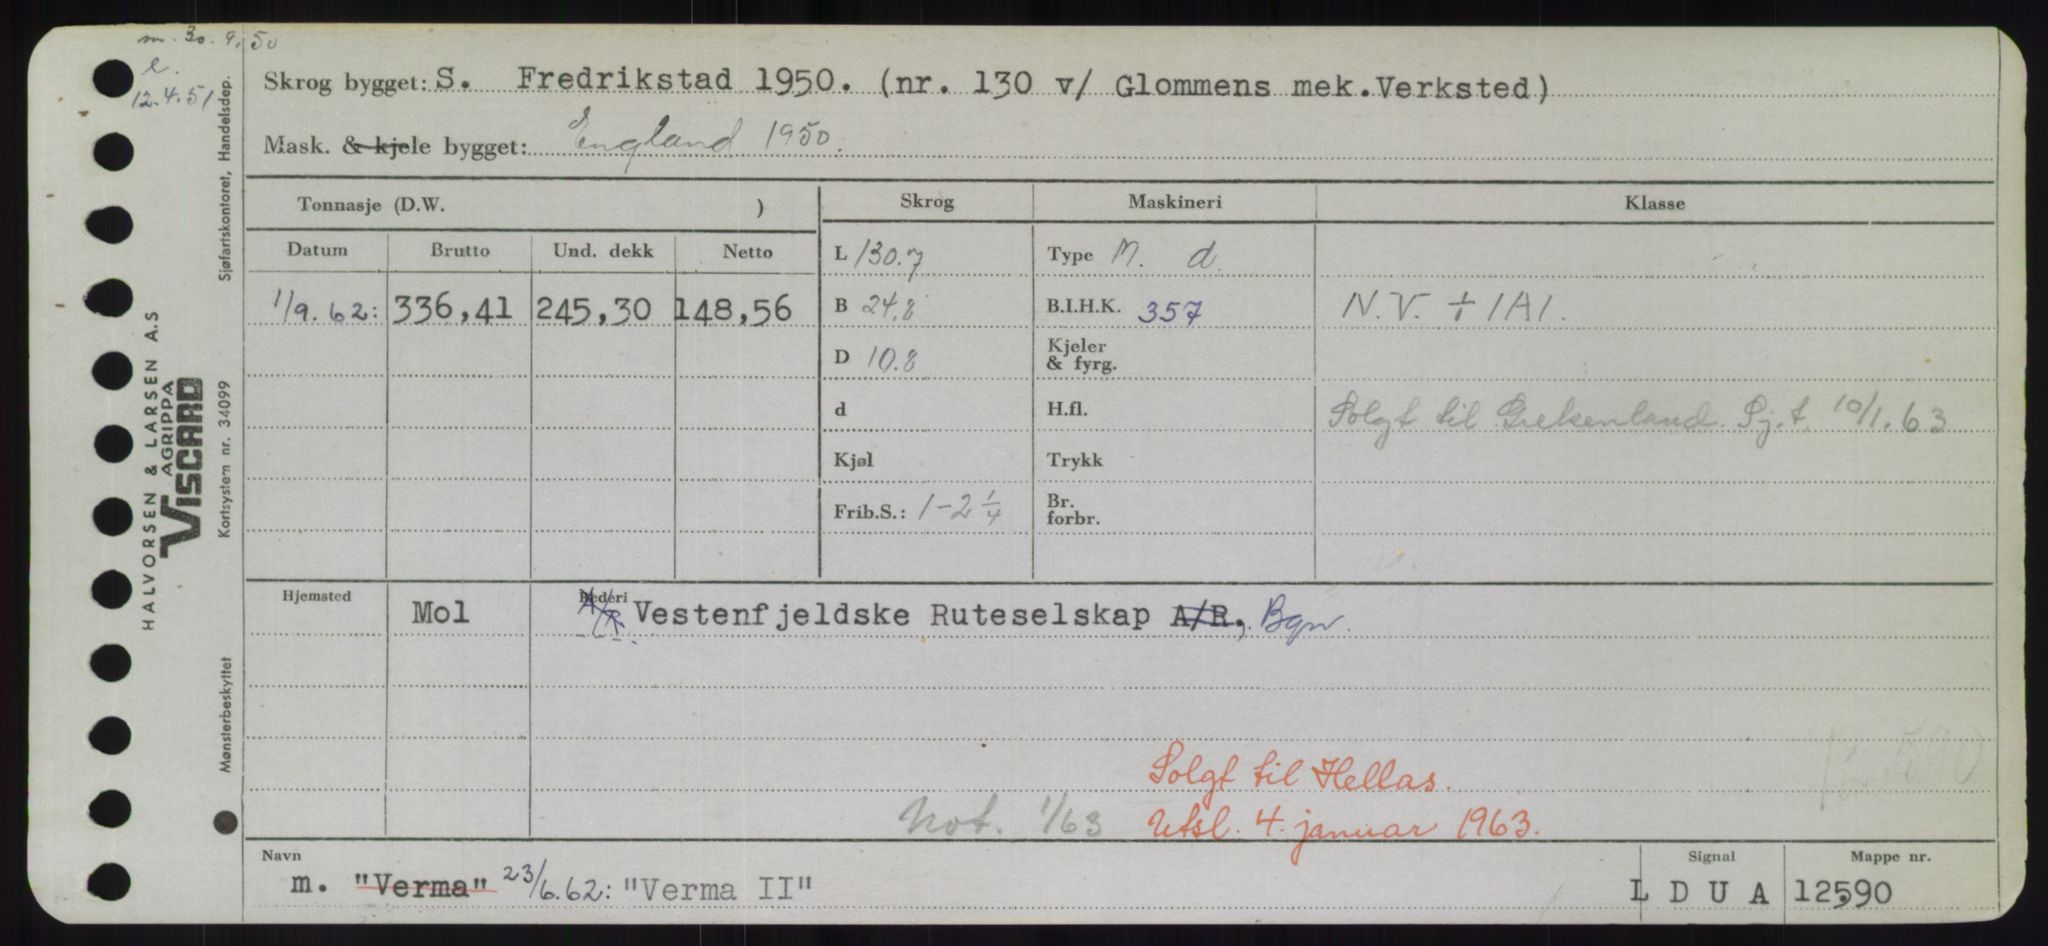 m. 30. 9. 50
e.
12.4.51
Skrog bygget: S. Fredrikstad 1950. (nr. 130 v/ Glommens mek.Verksted)
Mask. & kjele bygget: England 1950.
Tonnasje (D.W. )
Skrog Maskineri Klasse
Datum Brutto Und. dekk Netto
L 130.7 Type M. d.
1/9. 62: 336,41 245,30 148,56 B 24.8 B.I.H.K. 357 N.V. + 1A1.
D 10.8 Kjeler & fyrg.
d H.fl. Solgt til Grekenland. Sj.t. 10/1.63
Kjøl Trykk
Frib.S.: 1-2 1/4 Br. forbr.
Hjemsted Mol Rederi A/R Vestenfjeldske Ruteselskap A/R., Bgn.
12.590
Solgt til Hellas.
Not. 1/63 Utsl. 4. januar 1963.
Navn Signal Mappe nr.
m. "Verma" 23/6.62: "Verma II" L D U A 12590
Sjøfartskontoret, Handelsdep.
HALVORSEN & LARSEN A.S
AGRIPPA
VISCARD
Kortsystem nr. 34099
Mønsterbeskyttet